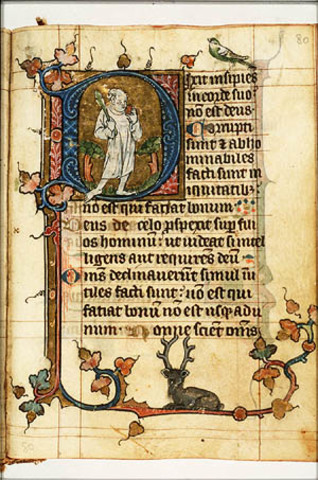 80
Dixit insipiēs
in corde suo
nō est deus
Corrupti
sunt ⁊ abho
minabiles
facti sunt in
iniquitatibꝫ
nō est qui faciat bonum
Deus de celo pspexit sup fili
os hominū: ut uideat si intel
ligens aut requirens deū
Oms̄ declinauerūt simul inu
tiles facti sunt: nō est qui
faciat bonū nō est usqꝫ ad u
num. Nonne scient om̄s